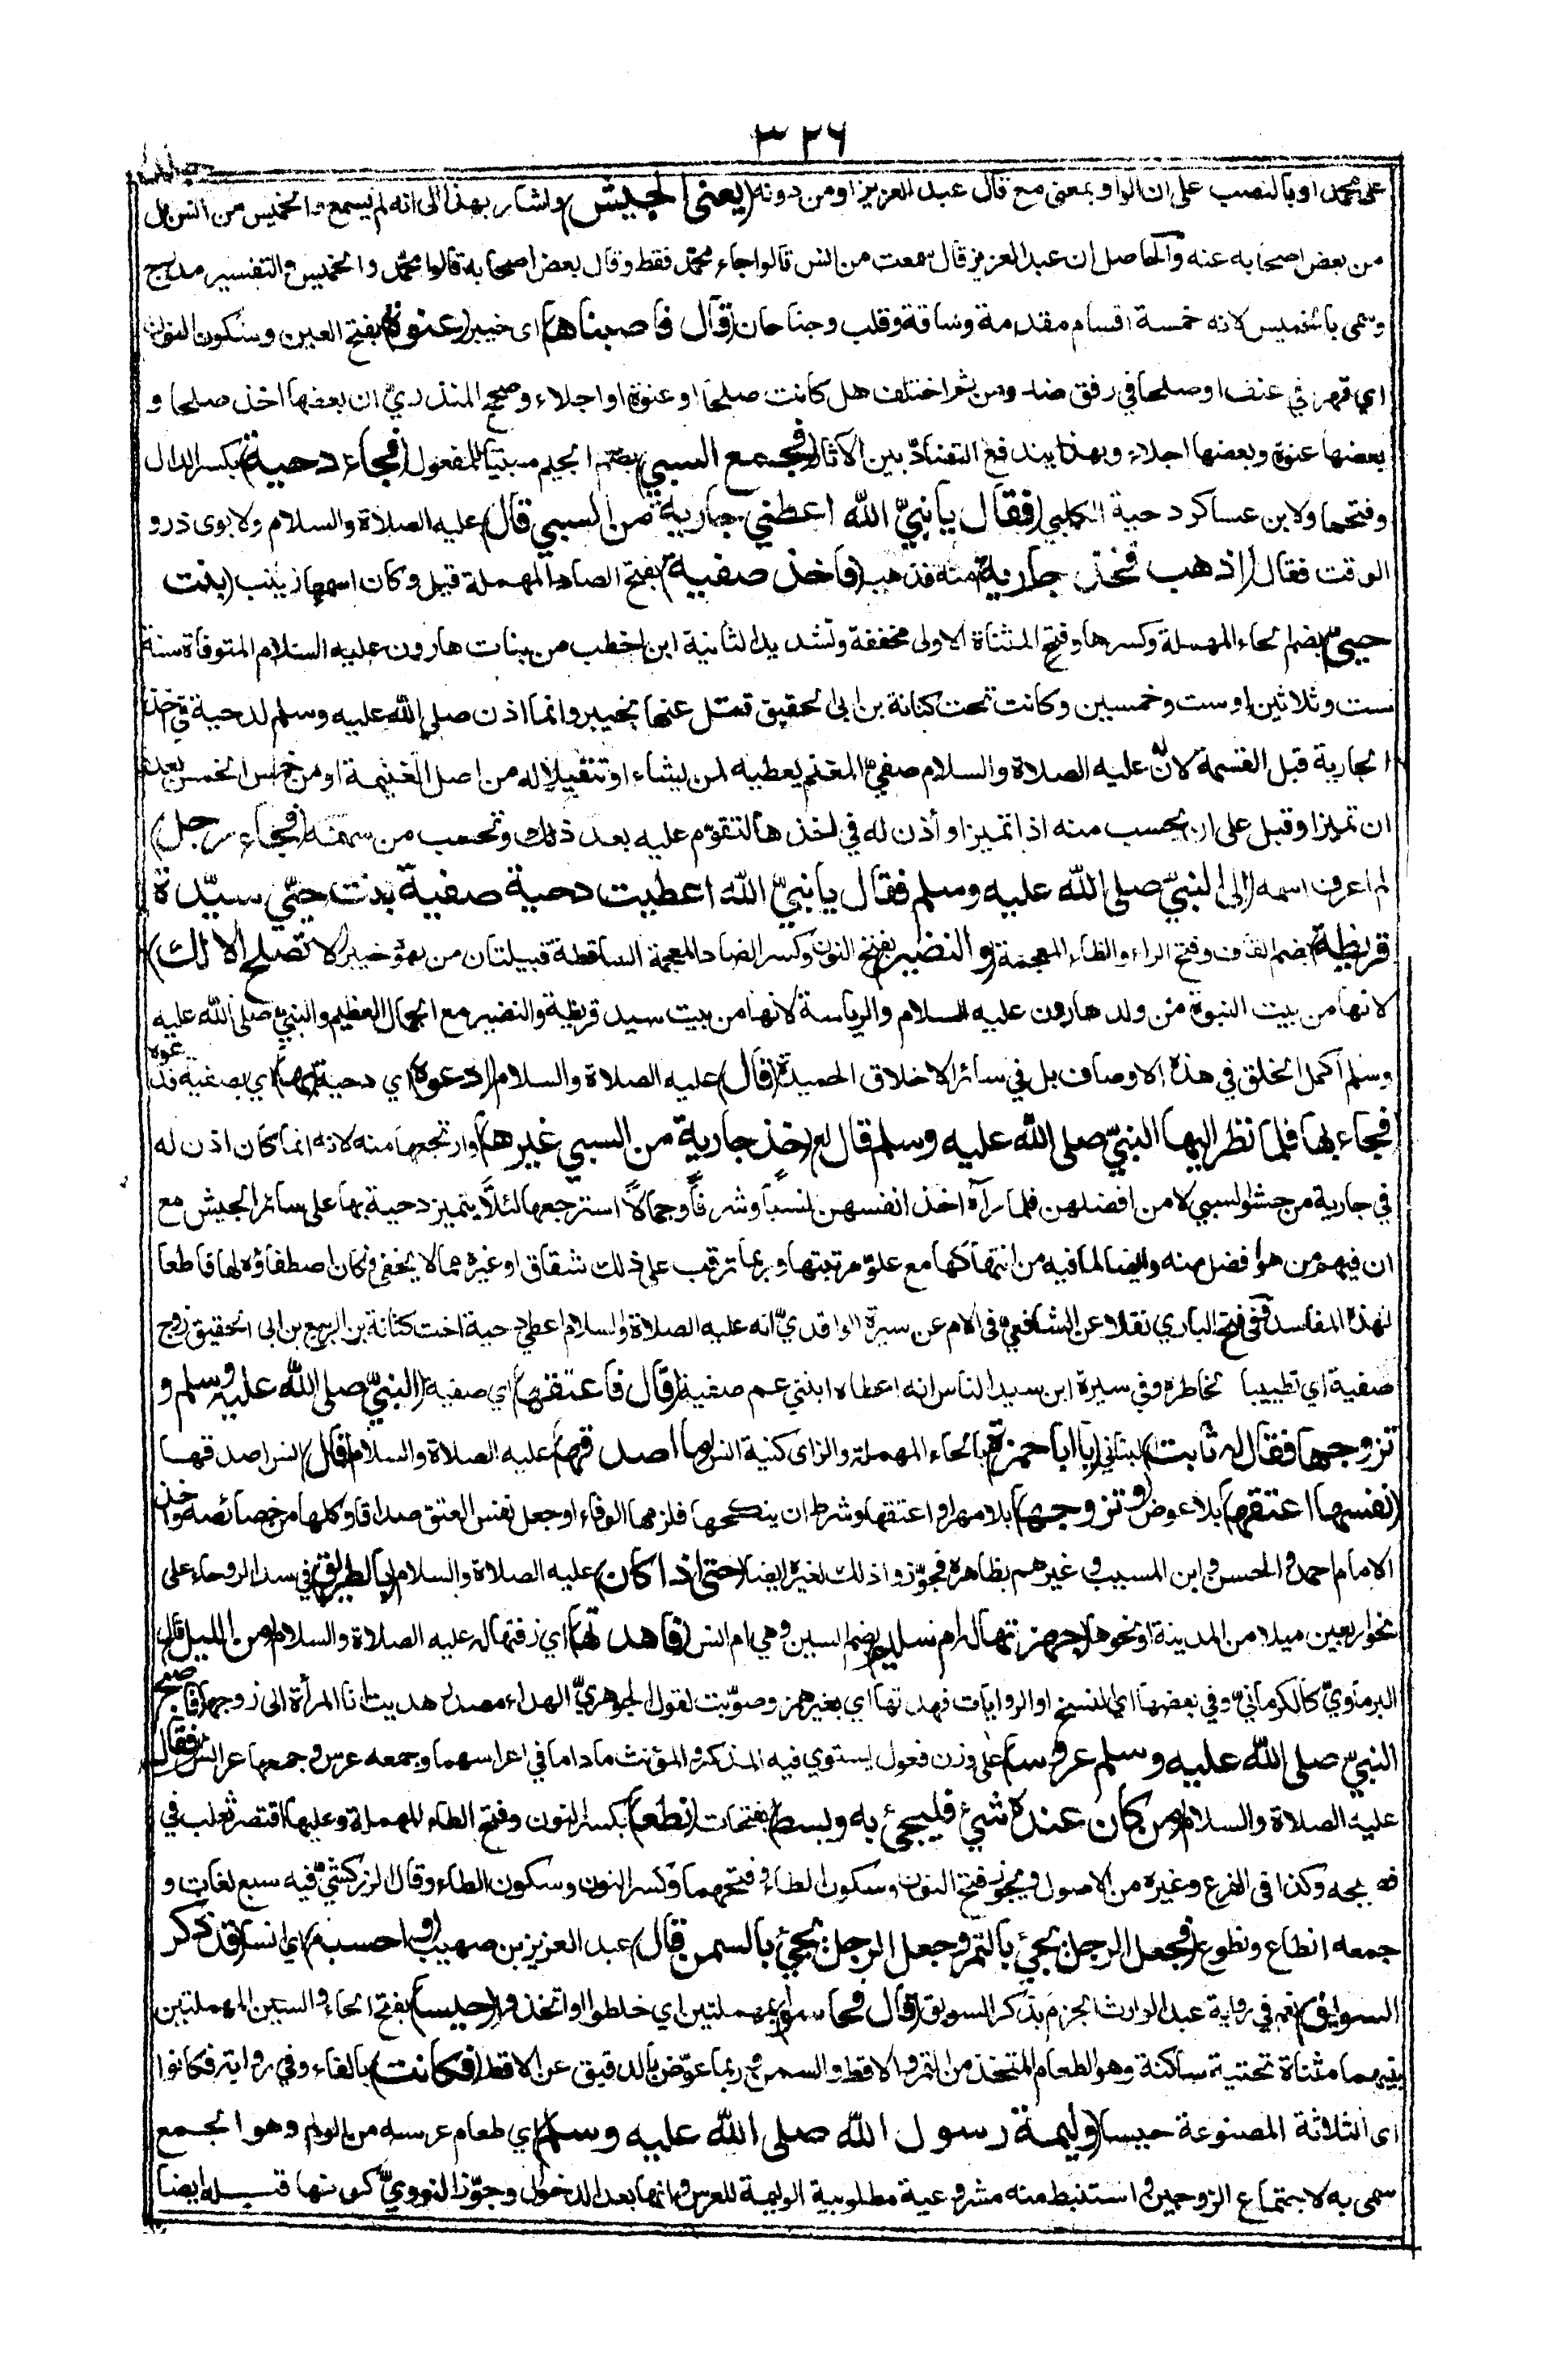 ٣٢٦
على محمد او بالنصب على ان الواو بمعنى مع قال عبد العزيز او من دونه (يعنى الجيش) واشار بهذا الى انه لم يسمع والخميس من انس بل
من بعض اصحابه عنه والحاصل ان عبد العزيز قال سمعت من انس قالوا جاء محمد فقط وقال بعض اصحابه قالوا محمد والخميس والتفسير مدرج
وسمى بالخميس لانه خمسة اقسام مقدمة وساقة وقلب وجناحان (قال فاصبناها) اى خيبر (عنوة) بفتح العين وسكون النون
اي قهر في عنف او صلحا في رفق ضد ومن ثم اختلف هل كانت صلحا او عنوة او اجلاء وصحح المنذري ان بعضها اخذ صلحا و
بعضها عنوة وبعضها اجلاء وبهذا يندفع التضاد بين الآثار (فجمع السبي) بضم الجيم مبنيا للمفعول (فجاء دحية) بكسر الدال
وفتحها ولابن عساكر دحية الكلبي (فقال يا نبيّ الله اعطني جارية من السبي قال) عليه الصلاة والسلام ولابوى ذر و
الوقت فقال (اذهب فخذ جارية) منه فذهب (فاخذ صفية) بفتح الصاد المهملة قيل وكان اسمها زينب (بنت
حييّ) بضم الحاء المهملة وكسرها وفتح المثناة الاولى مخففة وتشديد الثانية ابن اخطب من بنات هارون عليه السلام المتوفاة سنة
ست وثلاثين او ست وخمسين وكانت تحت كنانة بن ابى الحقيق قتل عنها بخيبر وانما اذن صلى الله عليه وسلم لدحية في اخذ
الجارية قبل القسمة لانّ له عليه الصلاة والسلام صفيّ المغنم يعطيه لمن يشاء او تنفيلا له من اصل الغنيمة او من خمس الخمس بعد
ان تميز او قبل على ان يحسب منه اذا تميز او أذن له في اخذها لتقوّم عليه بعد ذلك وتحسب من سهمه (فجاء رجل)
لم اعرف اسمه (الى النبيّ صلى الله عليه وسلم فقال يا نبيّ الله اعطيت دحية صفية بنت حييّ سيّدة
قريظة) بضم القاف وفتح الراء والظاء المعجمة (والنضير) بفتح النون وكسر الضاد المعجمة الساقطة قبيلتان من يهود خيبر (لا تصلح الا لك)
لانها من بيت النبوة من ولد هارون عليه السلام والرياسة لانها من بيت سيد قريظة والنضير مع الجمال العظيم والنبيّ صلى الله عليه
وسلم اكمل الخلق في هذه الاوصاف بل في سائر الاخلاق الحميدة (قال) عليه الصلاة والسلام (ادعوه) اي دحية (بها) اي بصفية فدعوه
(فجاء بها فلما نظر اليها النبيّ صلى الله عليه وسلم قال) له (خذ جارية من السبي غيرها) وارتجعها منه لانه انما كان اذن له
في جارية من حشو السبي لا من افضلهن فلما رآه اخذ انفسهن نسبا وشرفا وجمالا استرجعها لئلا يتميز دحية بها على سائر الجيش مع
ان فيهم من هو افضل منه وايضا لما فيه من انتهاكها مع علوّ مرتبتها وربما ترتب على ذلك شقاق او غيره مما لا يخفى فكان اصطفاؤه لها قاطعا
لهذه المفاسد ففي فتح الباري نقلا عن الشافعي في الام عن سيرة الواقديّ انه عليه الصلاة والسلام اعطى دحية اخت كنانة بن الربيع بن ابى الحقيق زوج
صفية اي تطييبا لخاطره وفي سيرة ابن سيد الناس انه اعطاه ابنتي عم صفية (قال فاعتقها) اي صفية (النبيّ صلى الله عليه وسلم و
تزوجها فقال له ثابت) البناني (يا ابا حمزة) بالحاء المهملة والزاى كنية انس (ما اصدقها) عليه الصلاة والسلام (قال) انس اصدقها
(نفسها اعتقها) بلا عوض (وتزوجها) بلا مهر او اعتقها وشرط ان ينكحها فلزمها الوفاء او جعل نفس العتق صداقا وكلها من خصائصه واخذ
الامام احمد والحسن وابن المسيب وغيرهم بظاهره فجوّزوا ذلك لغيره ايضا (حتى اذا كان) عليه الصلاة والسلام (بالطريق) في سد الروحاء على
نحو اربعين ميلا من المدينة او نحوها (جهزتها له ام سليم) بضم السين وهي ام انس (فاهدتها) اي زفتها له عليه الصلاة والسلام (من الليل) قال
البرماويّ كالكرمانيّ وفي بعضها اي النسخ او الروايات فهدتها اي بغير همز وصوّبت لقول الجوهريّ الهداء مصدر هديت انا المرأة الى زوجها (فاصبح
النبيّ صلى الله عليه وسلم عروسا) على وزن فعول يستوي فيه المذكر والمؤنث ما داما في اعراسهما وجمعه عرس وجمعها عرائس (فقال)
عليه الصلاة والسلام (من كان عنده شئ فليجئ به وبسط) بفتحات (نطعا) بكسر النون وفتح الطاء المهملة وعليها اقتصر ثعلب في
فصيحه وكذا في الفرع وغيره من الاصول ويجوز فتح النون وسكون الطاء وفتحهما وكسر النون وسكون الطاء وقال الزركشيّ فيه سبع لغات و
جمعه انطاع ونطوع (فجعل الرجل يجئ بالتمر وجعل الرجل يجئ بالسمن قال) عبد العزيز بن صهيب (واحسبه) اي انسا (قد ذكر
السويق) نعم في رواية عبد الوارث الجزم بذكر السويق (قال فحاسوا) بمهملتين اي خلطوا او اتخذوا (حيسا) بفتح الحاء والسين المهملتين
بينهما مثناة تحتية ساكنة وهو الطعام المتخذ من التمر والاقط والسمن وربما عوّض بالدقيق عن الاقط (فكانت) بالفاء وفي رواية فكانوا
اى الثلاثة المصنوعة حيسا (وليمة رسول الله صلى الله عليه وسلم) اي طعام عرسه من الولم وهو الجمع
سمى به لاجتماع الزوجين واستنبط منه مشروعية مطلوبية الوليمة للعرس وانها بعد الدخول وجوّز النوويّ كونها قبله ايضا